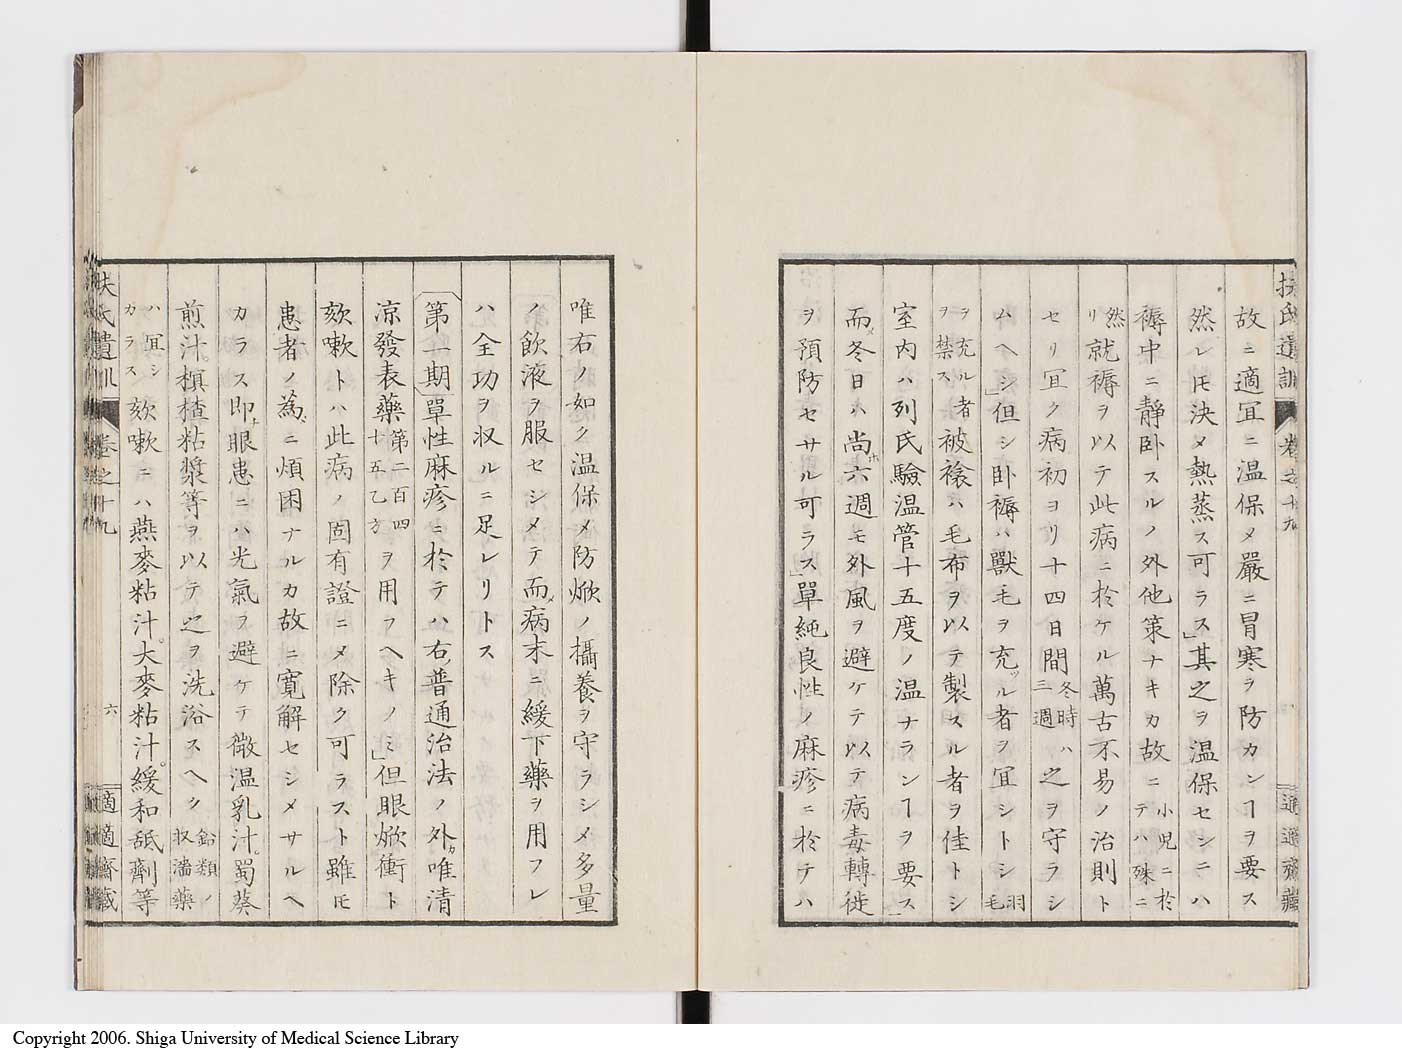 扶氏遺訓 卷之十九 適適齋藏
故ニ適宜ニ温保メ嚴ニ冒寒ヲ防カンヿヲ要ス
然レ𪜈决メ熱蒸ス可ラス」其之ヲ温保センニハ
褥中ニ靜卧スルノ外他策ナキカ故ニ小児ニ於テハ殊ニ
然リ就褥ヲ以テ此病ニ於ケル萬古不易ノ治則ト
セリ宜ク病初ヨリ十四日間冬時ハ三週之ヲ守ラシ
ムヘシ」但シ卧褥ハ獸毛ヲ充ツル者ヲ宜シトシ羽毛
ヲ充ル者ヲ禁ス被褥ハ毛布ヲ以テ製スル者ヲ佳トシ
室内ハ列氏驗温管十五度ノ温ナランヿヲ要ス」
而メ冬日ハ尚ホ六週モ外風ヲ避ケテ以テ病毒轉徙
ヲ預防セサル可ラス」單純良性ノ麻疹ニ於テハ
唯右ノ如ク温保メ防焮ノ攝養ヲ守ラシメ多量
ノ飲液ヲ服セシメテ而メ病末ニ緩下藥ヲ用フレ
ハ全功ヲ収ルニ足レリトス
第一期單性麻疹ニ於テハ右ノ普通治法ノ外カ唯清
涼發表藥第二百四十五乙方ヲ用フヘキノミ」但眼焮衝ト
欬嗽トハ此病ノ固有證ニメ除ク可ラスト雖𪜈
患者ノ為ニ煩困ナルカ故ニ寛解セシメサルヘ
カラス即チ眼患ニハ光氣ヲ避ケテ微温乳汁。蜀葵
煎汁。榠樝粘漿等ヲ以テ之ヲ洗浴スヘク鉛類ノ収濇藥
ハ宜シカラス欬嗽ニハ燕麥粘汁。大麥粘汁。緩和舐劑等
扶氏遺訓 卷之十九 六 適適齋藏
Copyright 2006. Shiga University of Medical Science Library